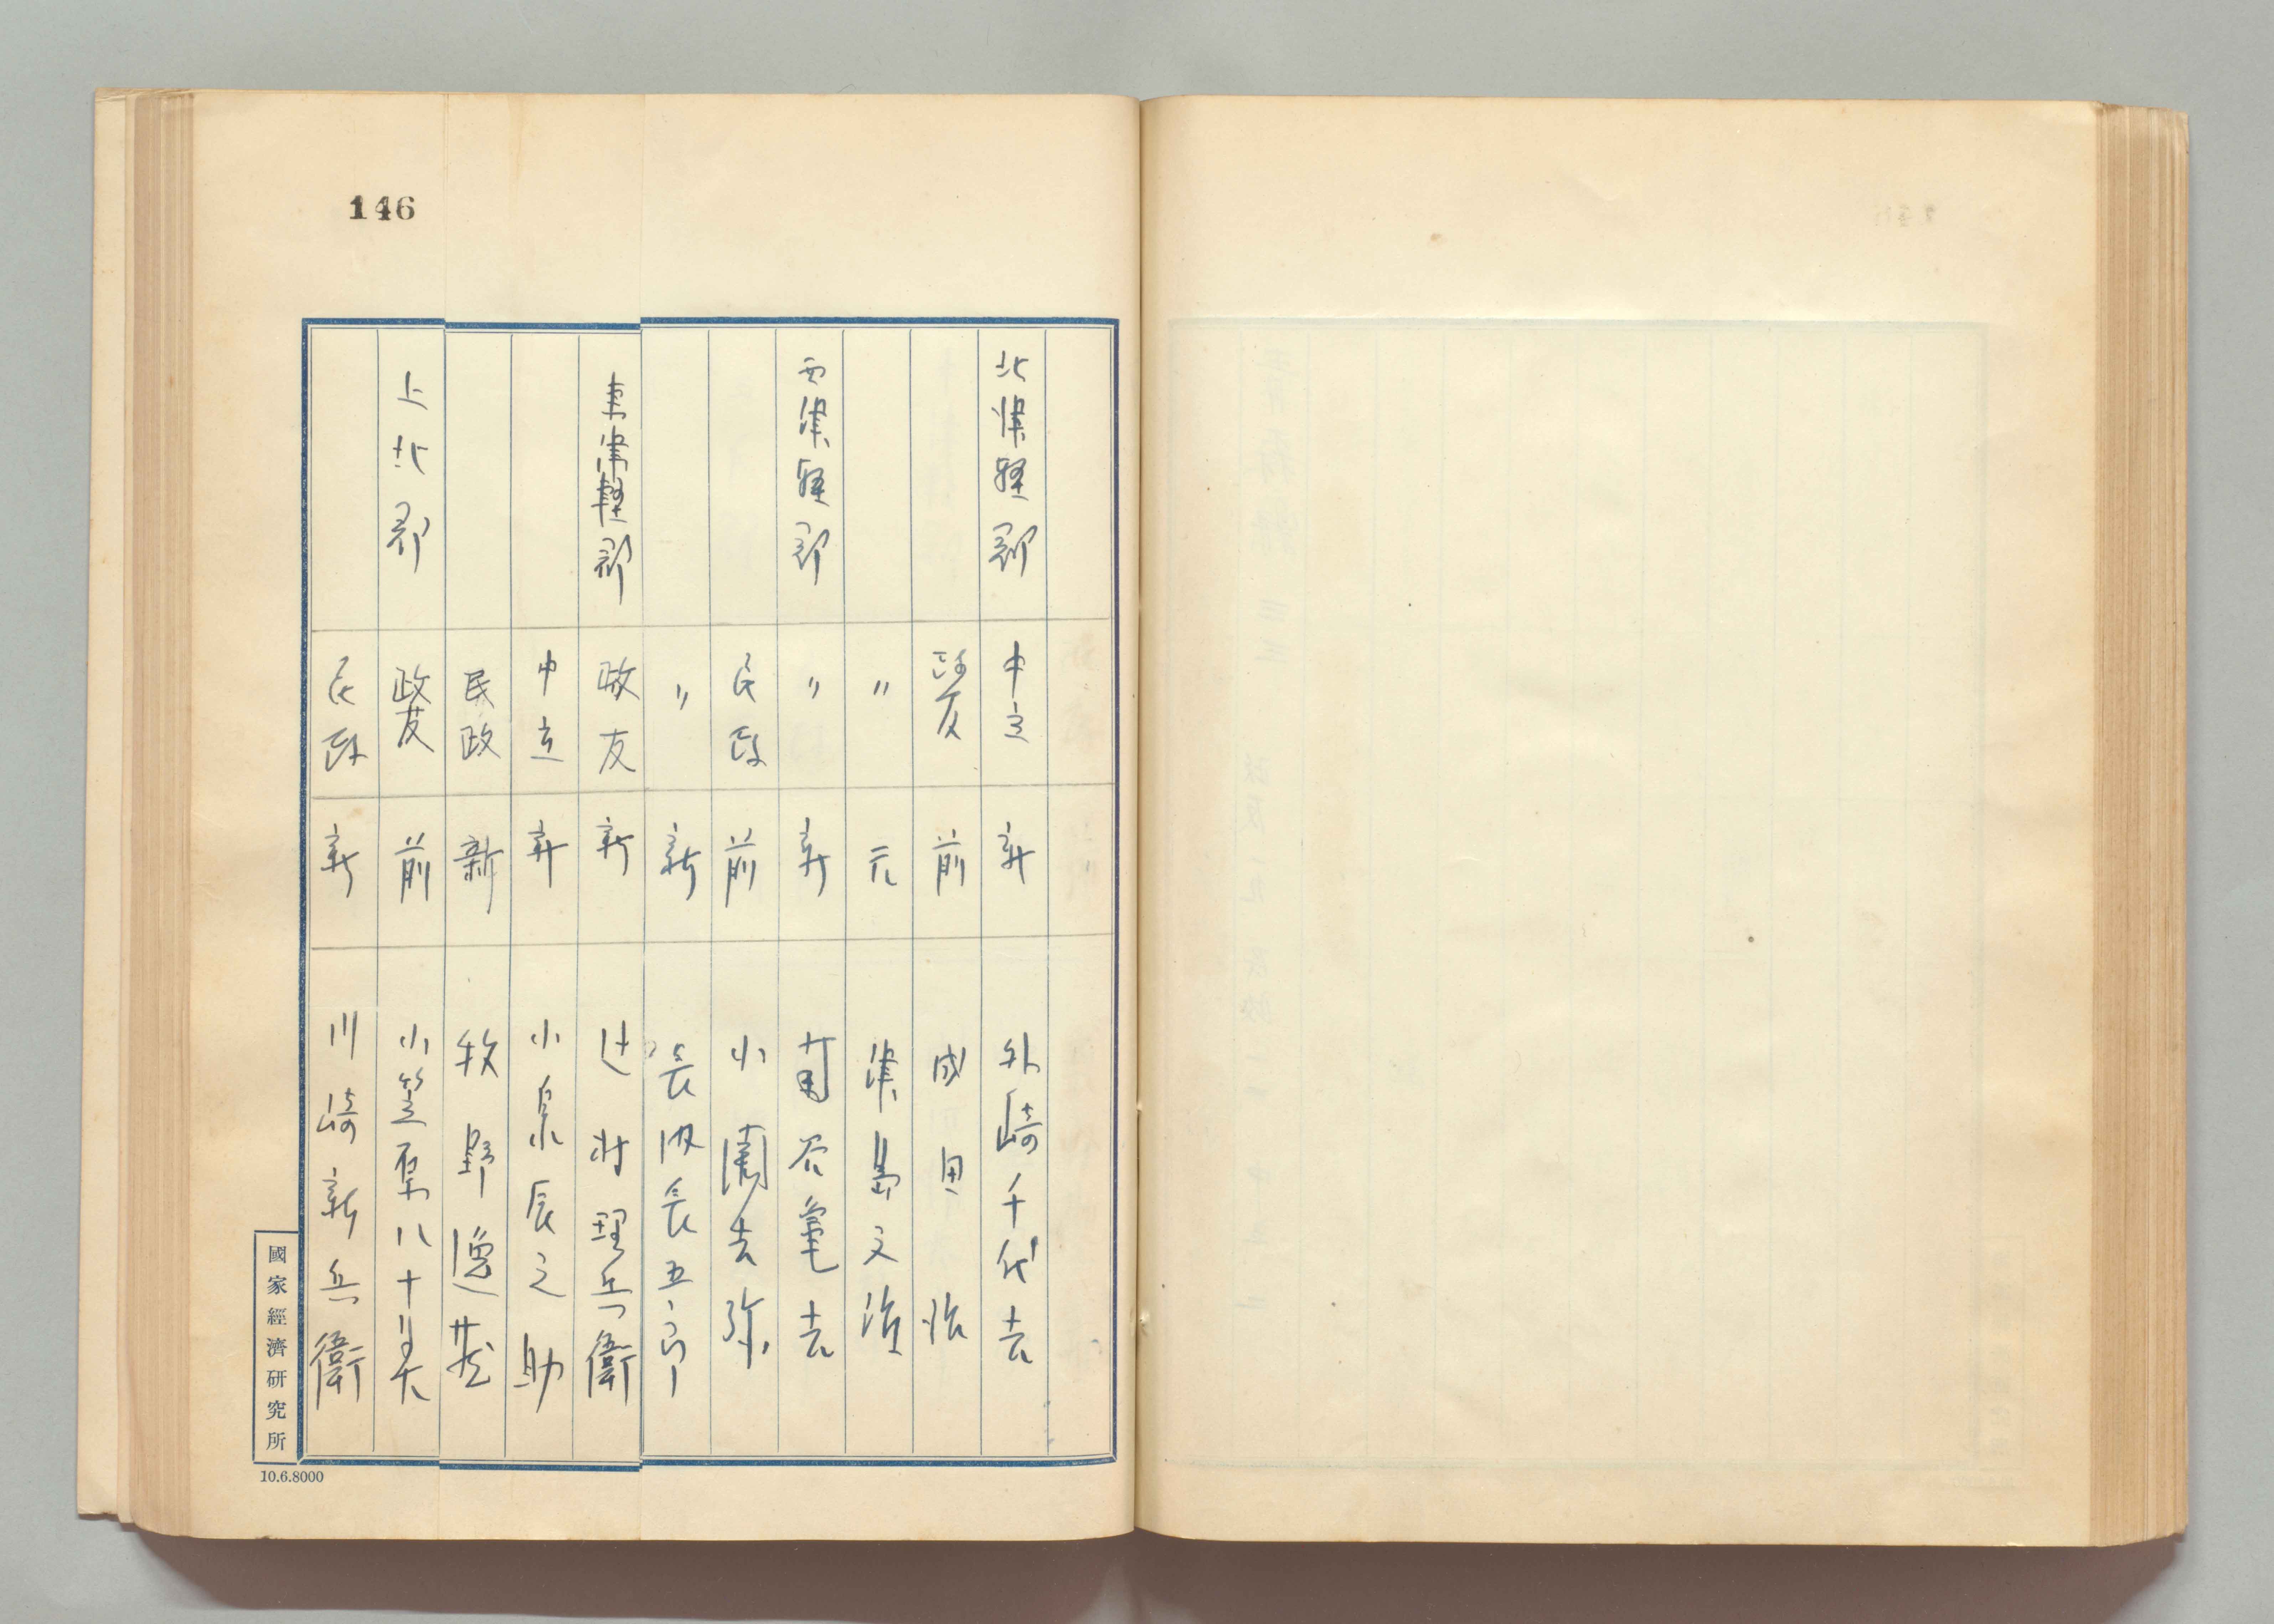 146
北津軽郡 中立 新 外崎千代吉
政友 前 成田 治
〃 元 津島文治
西津軽郡 〃 新 菊谷亀吉
民政 前 小園吉弥
〃 新 長内長五郎
東津軽郡 政友 新 辻村理兵衛
中立 新 小泉辰之助
民政 新 牧野逸
上北郡 政友 前 小笠原八十美
民政 新 川崎新兵衛
國家經濟研究所
10.6.8000